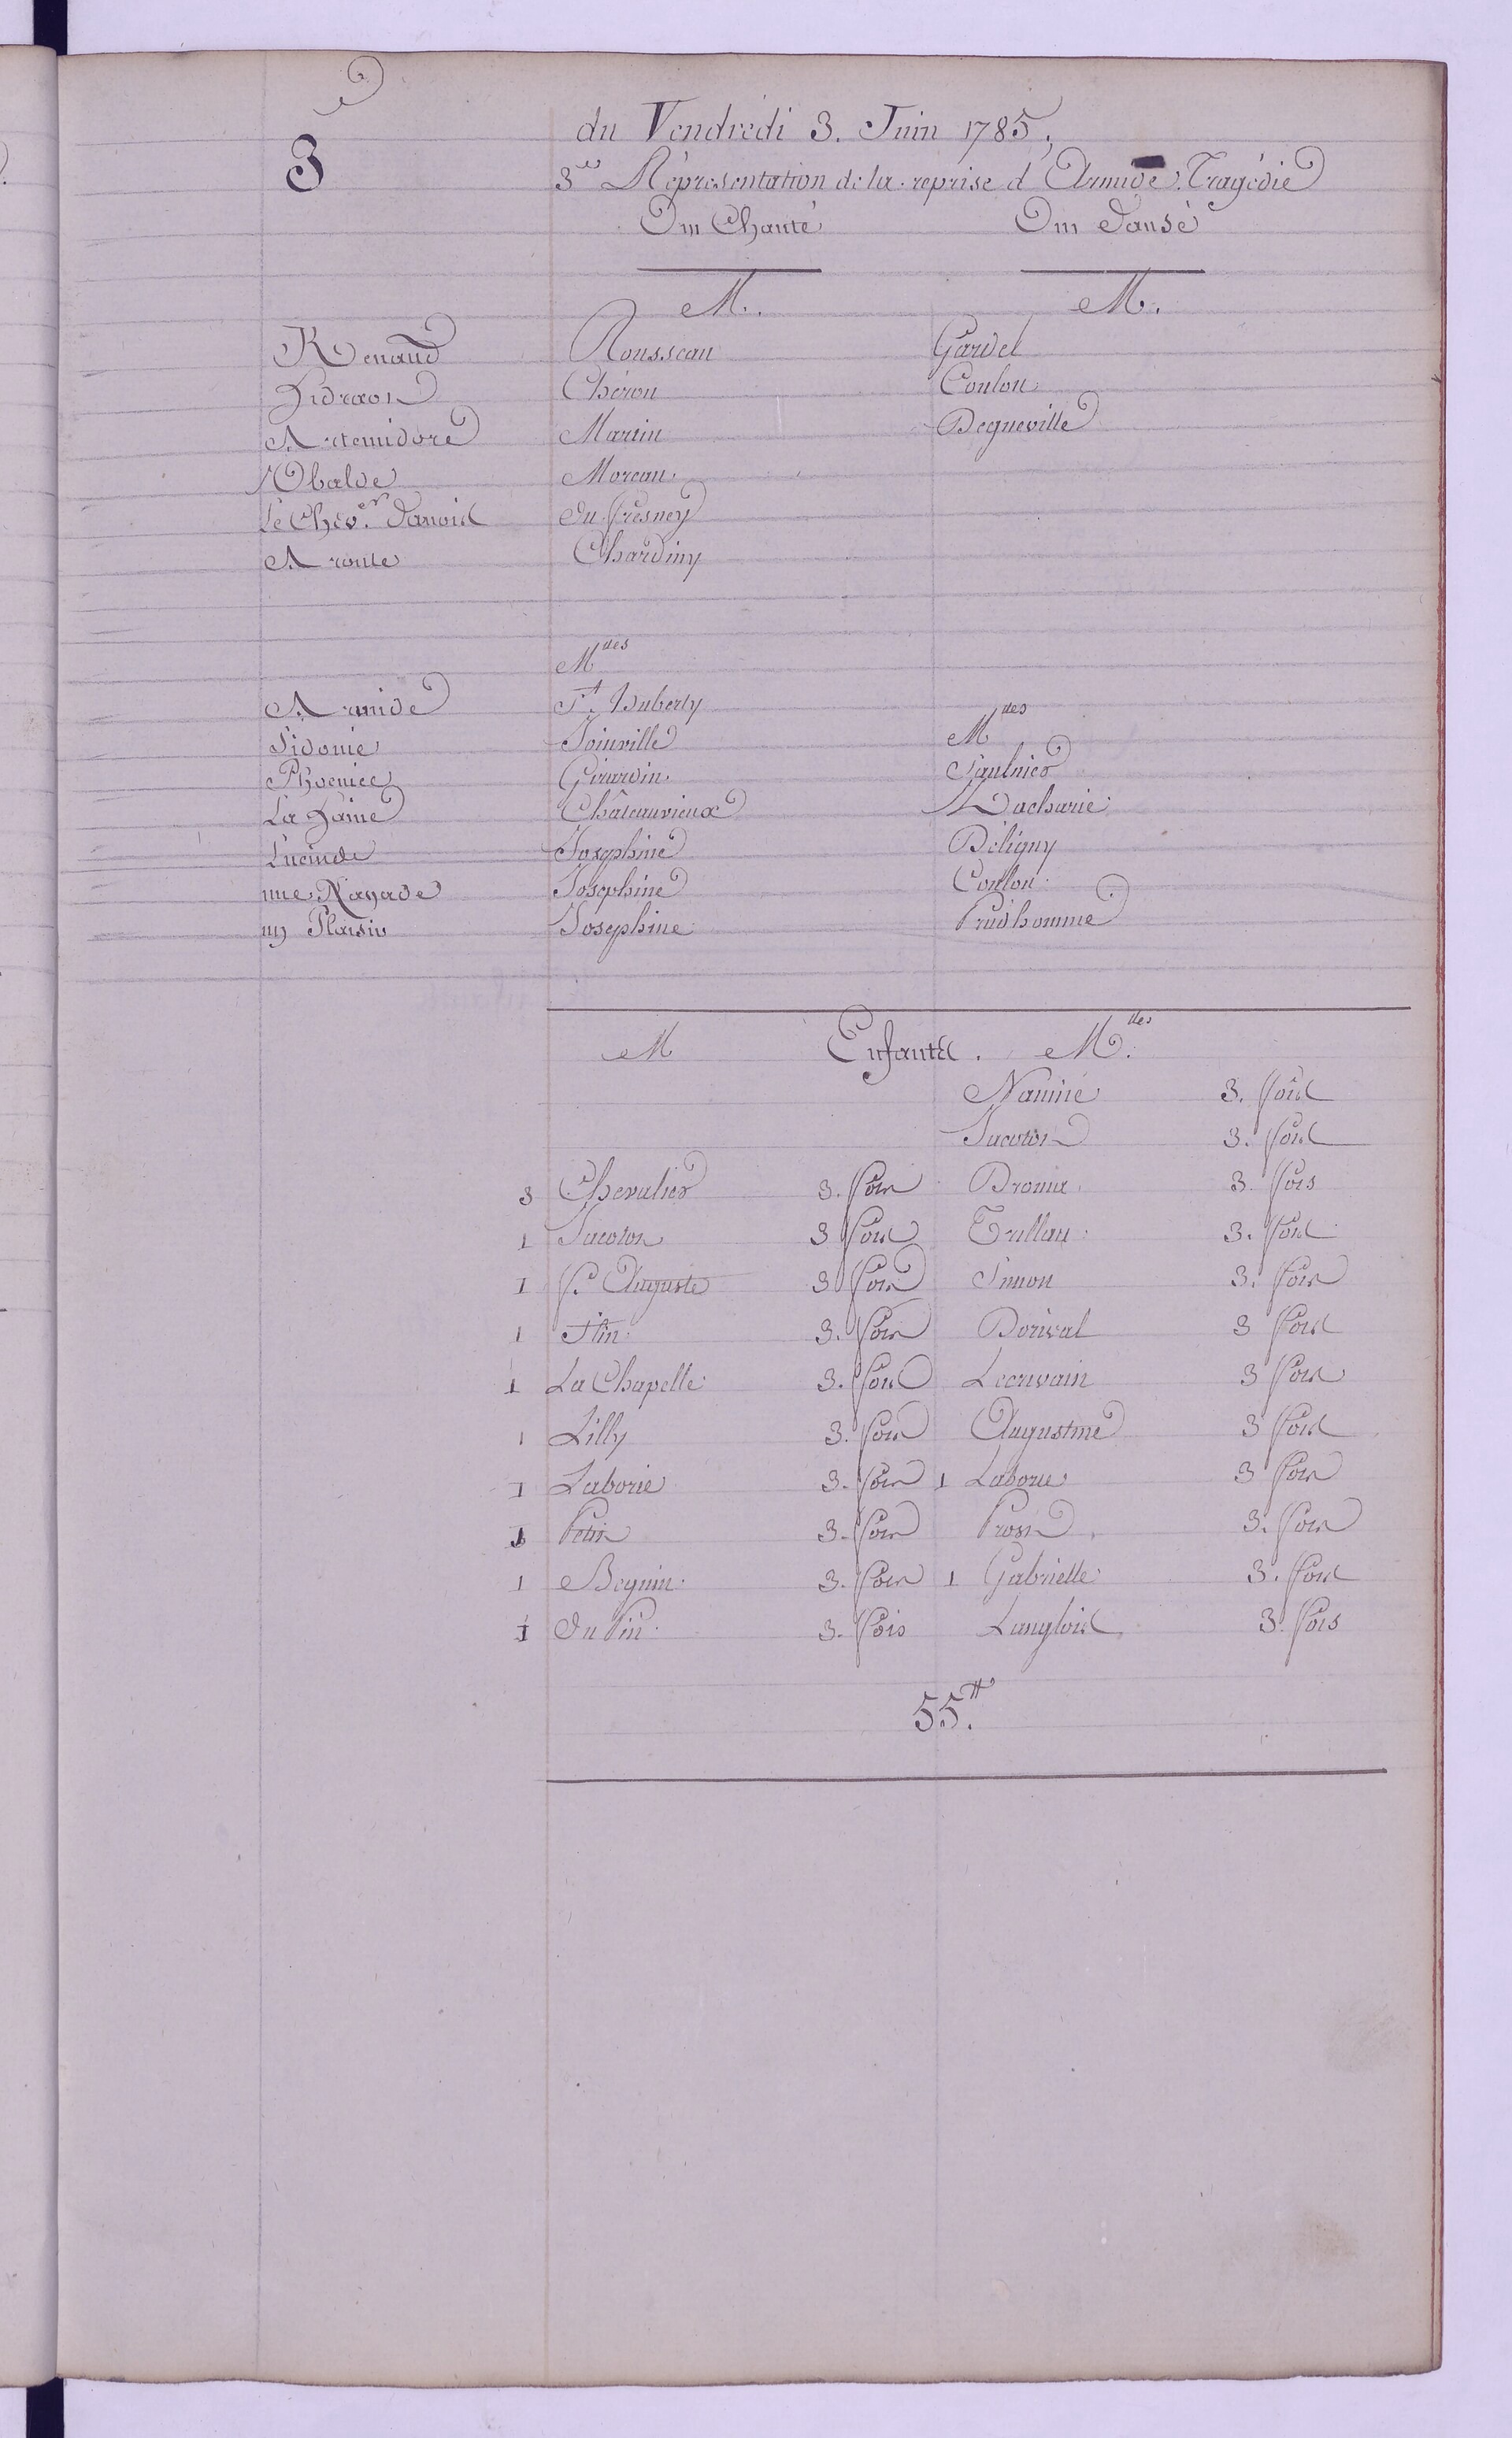 3
du Vendredi 3. Juin 1785,
3es Répresentation de la reprise d'Armide. Tragédie
Ont Chanté Ont Dansé
M. M.
Renaud Rousseau Gardel
Hidraot Chéron Coulon
Artemidore Martin Degueville
Ubalde Moreau
Le Chev.er Danois Du Fresney
Aronte Chardiny
Mdes
Armide St. Huberty
Mdes
Sidonie Joinville
Phoenice Girardin Saulnier
La haine Châteauvieux Zacharie
Lucinde Josephine Béligny
une Nayade Josephine Coulon
un Plaisir Josephine Prudhomme
M Enfants. Mdes
Nanine 3. fois
Jacotot 3. fois
3 Chevalier 3. fois Brouna 3. fois
1 Jacotot 3 fois Trullau 3. fois
1 f. Auguste 3 fois Simon 3. fois
1 Stin 3. fois Dorival 3 fois
1 La Chapelle 3. fois Lecrivain 3 fois
1 Lilly 3. fois Augustine 3 fois
1 Laborie 3. fois 1 Laborie 3 fois
1 Petit 3. fois 3. fois
1 Beguin 3. fois 1 Gabrielle 3. fois
1 Du Pin 3. fois Langlois 3. fois
55.tt